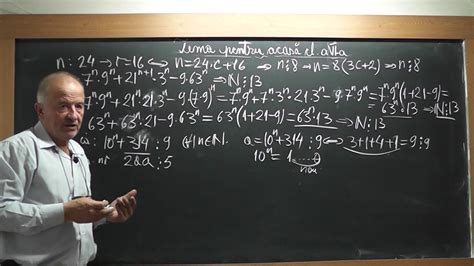 Temă pentru acasă cl. a VI-a
n : 24 → r=16 ↔ n=24·c+16 ↔ n⋮8 → n=8(3c+2) ⇒ n⋮8
7ⁿ·9ⁿ+21ⁿ⁺¹·3ⁿ-9·63ⁿ ⇒ N⋮13
7ⁿ·9ⁿ+21ⁿ·21·3ⁿ-9·(7·9)ⁿ=7ⁿ·9ⁿ+7ⁿ·3ⁿ·21·3ⁿ-9·7ⁿ·9ⁿ=7ⁿ·9ⁿ(1+21-9)=
=63ⁿ·13 ⇒ N⋮13
63ⁿ+63ⁿ·21-9·63ⁿ=63ⁿ(1+21-9)=63ⁿ·13 ⇒ N⋮13
a=10ⁿ+314 ⋮9 (∀)n∈N. a=10ⁿ+314⋮9 ↔ 3+1+4+1=9⋮9
nr 2&a ⋮5 10ⁿ=1...0